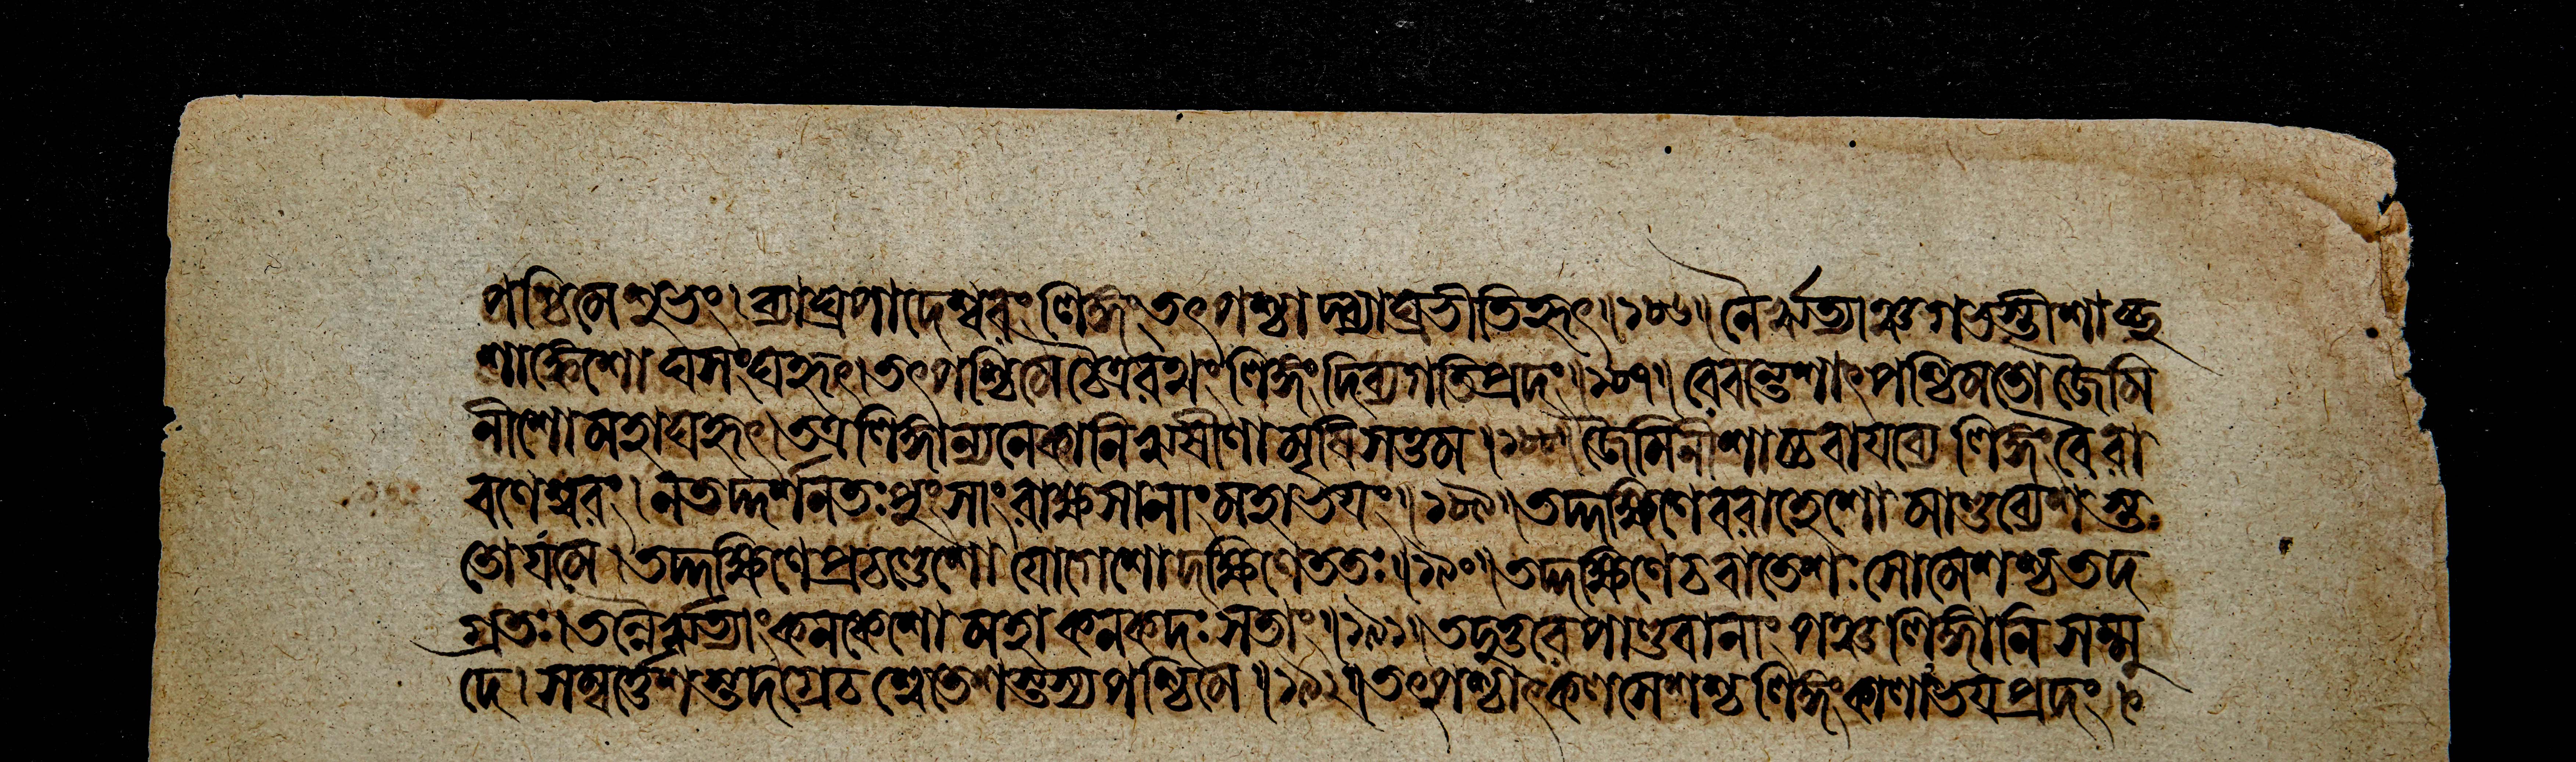 পশ্চিমে শুভং। ব্যাঘ্রপাদেশ্বরং লিঙ্গং তৎপশ্চাদ্ব্যাঘ্রভীতিহৃৎ॥১৮৬॥ নৈরৃত্যাঞ্চ গভস্তীশাচ্ছু
শাঙ্কেশোঘসংঘহৃৎ। তৎপশ্চিমে চৈত্ররথং লিঙ্গং দিব্যগতিপ্রদং॥১৮৭॥ রেবন্তেশাৎ পশ্চিমতো জৈমি
নীশো মহাঘহৃৎ। তত্র লিঙ্গান্যনেকানি ঋষীণামৃষিসত্তম॥১৮৮॥ জৈমিনীশাচ্চ বায়ব্যে লিঙ্গং বৈ রা
বণেশ্বরং। ন তদ্দর্শনতঃ পুংসাং রাক্ষসানাং মহাভয়ং॥১৮৯॥ তদ্দক্ষিণে বরাহেশো মাণ্ডব্যেশস্ত
তো যমে। তদ্দক্ষিণে প্রচণ্ডেশো যোগেশো দক্ষিণে ততঃ॥১৯০॥ তদ্দক্ষিণে চ ধাতেশঃ সোমেশশ্চ তদ
গ্রতঃ। তন্নৈরৃত্যাং কনকেশো মহাকনকদঃ সতাং॥১৯১॥ তদুত্তরে পাণ্ডবানাং পঞ্চ লিঙ্গানি সম্মু
দে। সম্বর্ত্তেশস্তদগ্রে চ শ্বেতেশস্তস্য পশ্চিমে॥১৯২॥ তৎপশ্চাৎ কলসেশশ্চ লিঙ্গং কালাভয়প্রদং।